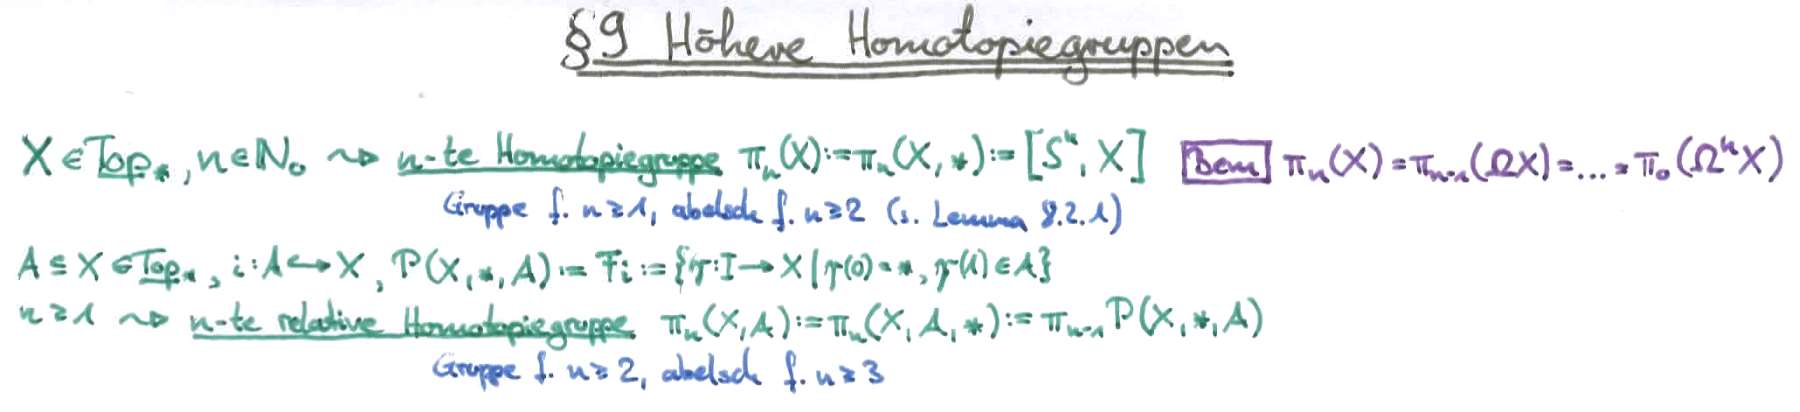 §9 Höhere Homotopiegruppen
X ∈ Top_*, n ∈ ℕ₀ ⇝ n-te Homotopiegruppe π_n(X) := π_n(X, *) := [S^n, X] Bem π_n(X) = π_{n-1}(ΩX) = ... = π_0(Ω^n X)
Gruppe f. n ≥ 1, abelsch f. n ≥ 2 (s. Lemma 8.2.1)
A ⊆ X ∈ Top_*, i: A ↪ X, P(X, *, A) := F_i := {γ: I → X | γ(0) = *, γ(1) ∈ A}
n ≥ 1 ⇝ n-te relative Homotopiegruppe π_n(X, A) := π_n(X, A, *) := π_{n-1} P(X, *, A)
Gruppe f. n ≥ 2, abelsch f. n ≥ 3